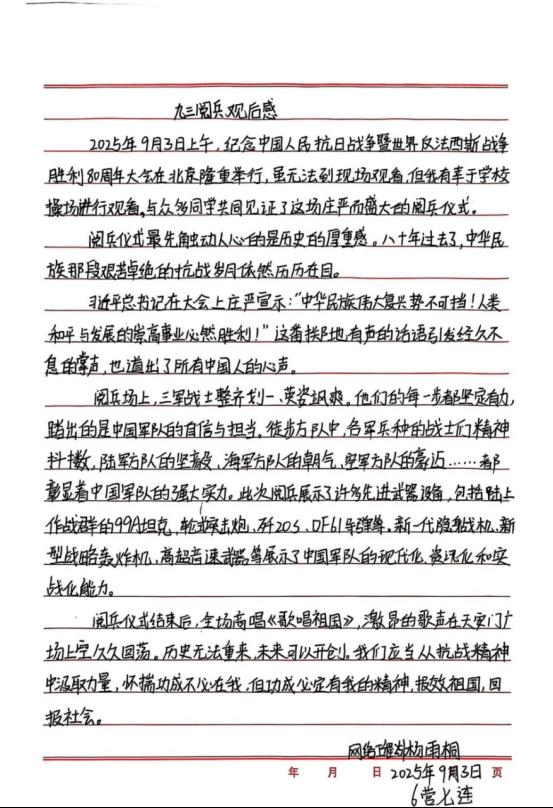 九三阅兵观后感
2025年9月3日上午,纪念中国人民抗日战争暨世界反法西斯战争
胜利80周年大会在北京隆重举行,虽无法到现场观看,但我有幸于学校
操场进行观看,与众多同学共同见证了这场庄严而盛大的阅兵仪式。
阅兵仪式最先触动人心的是历史的厚重感。八十年过去了,中华民
族那段艰苦卓绝的抗战岁月依然历历在目。
习近平总书记在大会上庄严宣示:“中华民族伟大复兴势不可挡!人类
和平与发展的崇高事业必然胜利!”这番掷地有声的话语引发经久不
息的掌声,也道出了所有中国人的心声。
阅兵场上,三军战士整齐划一、英姿飒爽。他们的每一步都坚定有力,
踏出的是中国军队的自信与担当。徒步方队中,各军兵种的战士们精神
抖擞,陆军方队的坚毅、海军方队的朝气、空军方队的豪迈……都
彰显着中国军队的强大实力。此次阅兵展示了许多先进武器设备,包括陆上
作战群的99A坦克、轮式突击炮、歼20S、DF61导弹等。新一代隐身战机、新
型战略轰炸机、高超音速武器等展示了中国军队的现代化、资讯化和实
战化能力。
阅兵仪式结束后,全场高唱《歌唱祖国》,激昂的歌声在天安门广
场上空久久回荡。历史无法重来,未来可以开创。我们应当从抗战精神
中汲取力量,怀揣功成不必在我,但功成必定有我的精神,报效祖国,回
报社会。
网络工程 杨雨桐
年 月 日 2025年9月3日 页
6营七连